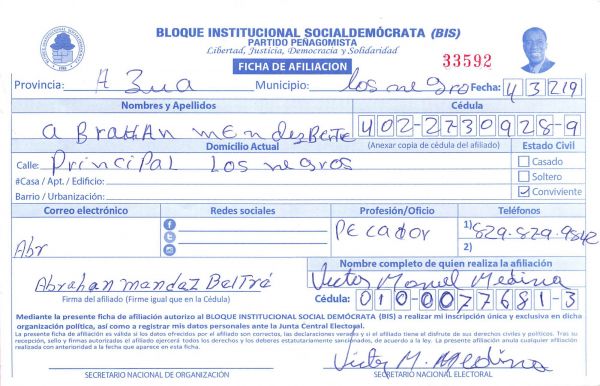 BLOQUE INSTITUCIONAL SOCIALDEMÓCRATA (BIS)
PARTIDO PEÑAGOMISTA
Libertad, Justicia, Democracia y Solidaridad
FICHA DE AFILIACION
33592
Provincia: A Zua Municipio: los negro Fecha: 4/3/219
Nombres y Apellidos Cédula
a Brahan mendez Berte 402-2730928-9
Domicilio Actual (Anexar copia de cédula del afiliado) Estado Civil
Calle: Principal Los negros Casado
#Casa / Apt. / Edificio: Soltero
Barrio / Urbanización: Conviviente
Correo electrónico Redes sociales Profesión/Oficio Teléfonos
Abr Pecador 1) 829.829.9842
2)
Nombre completo de quien realiza la afiliación
Abrahan mendaz Beltré Victor Manuel Medina
Firma del afiliado (Firme igual que en la Cédula) Cédula: 010-0077681-3
Mediante la presente ficha de afiliación autorizo al BLOQUE INSTITUCIONAL SOCIAL DEMÓCRATA (BIS) a realizar mi inscripción única y exclusiva en dicha
organización política, así como a registrar mis datos personales ante la Junta Central Electoral.
La presente ficha de afiliación es válida si los datos ofrecidos por el afiliado son correctos, las declaraciones veradas y si el afiliado tiene el disfrute de sus derechos civiles y políticos. Tras su
recepción, sello y firmas autorizadas el afiliado ejercerá todos los derechos y los deberes estatutariamente sancionados, de acuerdo a la ley. La presente afiliación anula cualquier afiliación
realizada con anterioridad a la fecha que aparece en esta ficha.
Victor M. Medina
SECRETARIO NACIONAL DE ORGANIZACIÓN SECRETARIO NACIONAL ELECTORAL